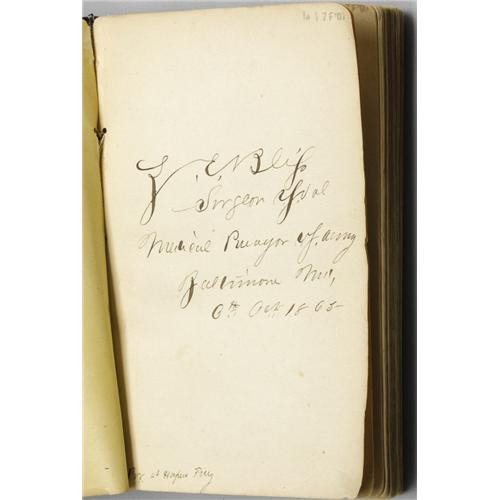 Z. E. Bliss
Surgeon U.S. Vol
Medical Purveyor U.S. Army
Baltimore Md,
6th Oct 1865
at Harpers Ferry